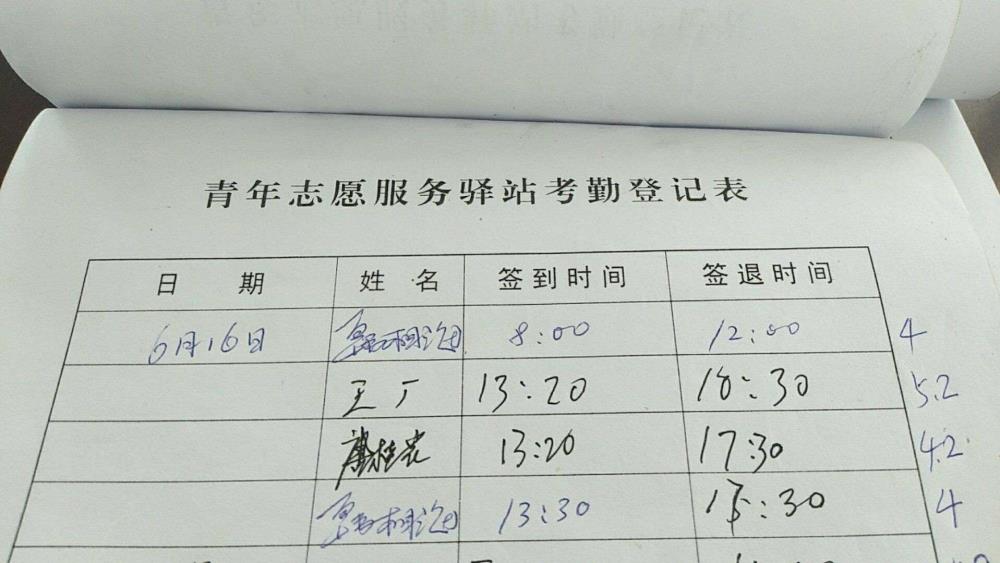 青年志愿服务驿站考勤登记表
日 期 姓 名 签到时间 签退时间
6月16日 8:00 12:00 4
王丁 13:20 18:30 5.2
13:20 17:30 4.2
13:30 4